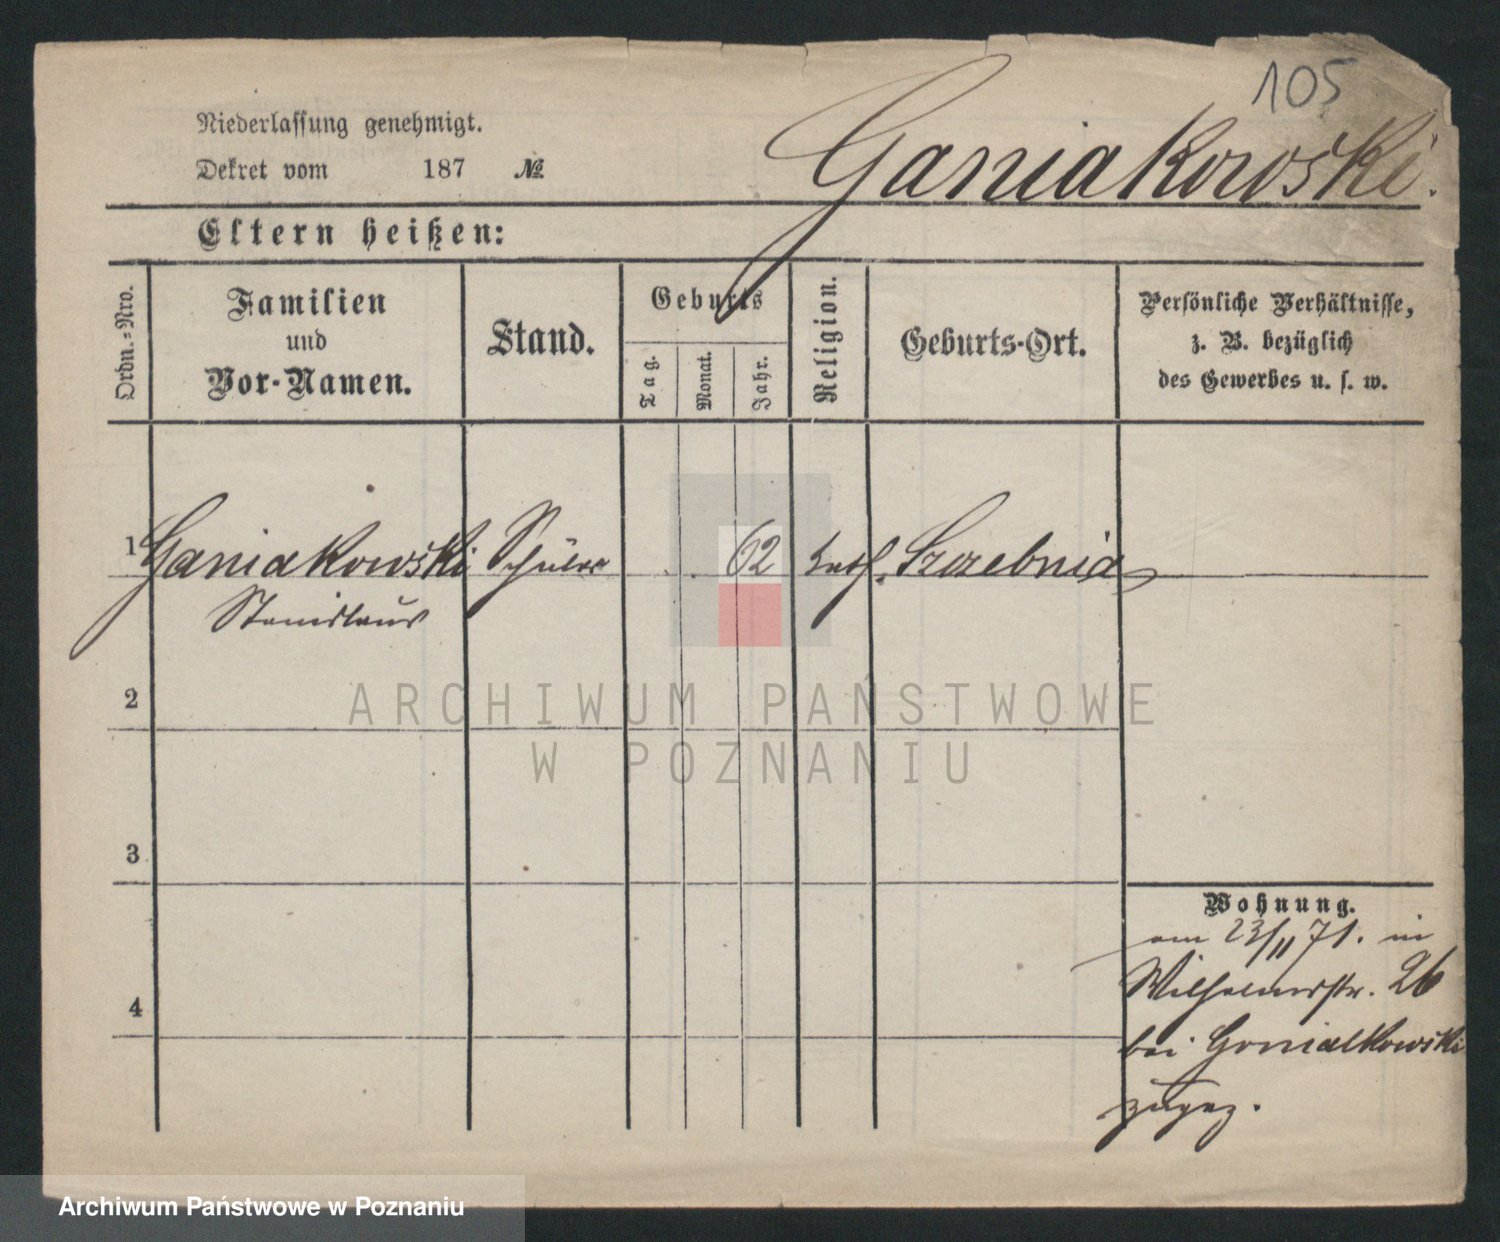 105
Niederlassung genehmigt.
Dekret vom 187 №
Ganiakowski.
Eltern heißen:
Ordn.-Nro.
Familien
und
Vor-Namen.
Stand.
Geburts
Tag.
Monat.
Jahr.
Religion.
Geburts-Ort.
Persönliche Verhältnisse,
z. B. bezüglich
des Gewerbes u. s. w.
1 Ganiakowski Schüler 62 kath. Szrzebnia
Stanislaus
2
3
4
Wohnung.
am 23/11 71. in
Wilhelmstr. 26
bei Gonialkowski
zugez.
ARCHIWUM PAŃSTWOWE
W POZNANIU
Archiwum Państwowe w Poznaniu